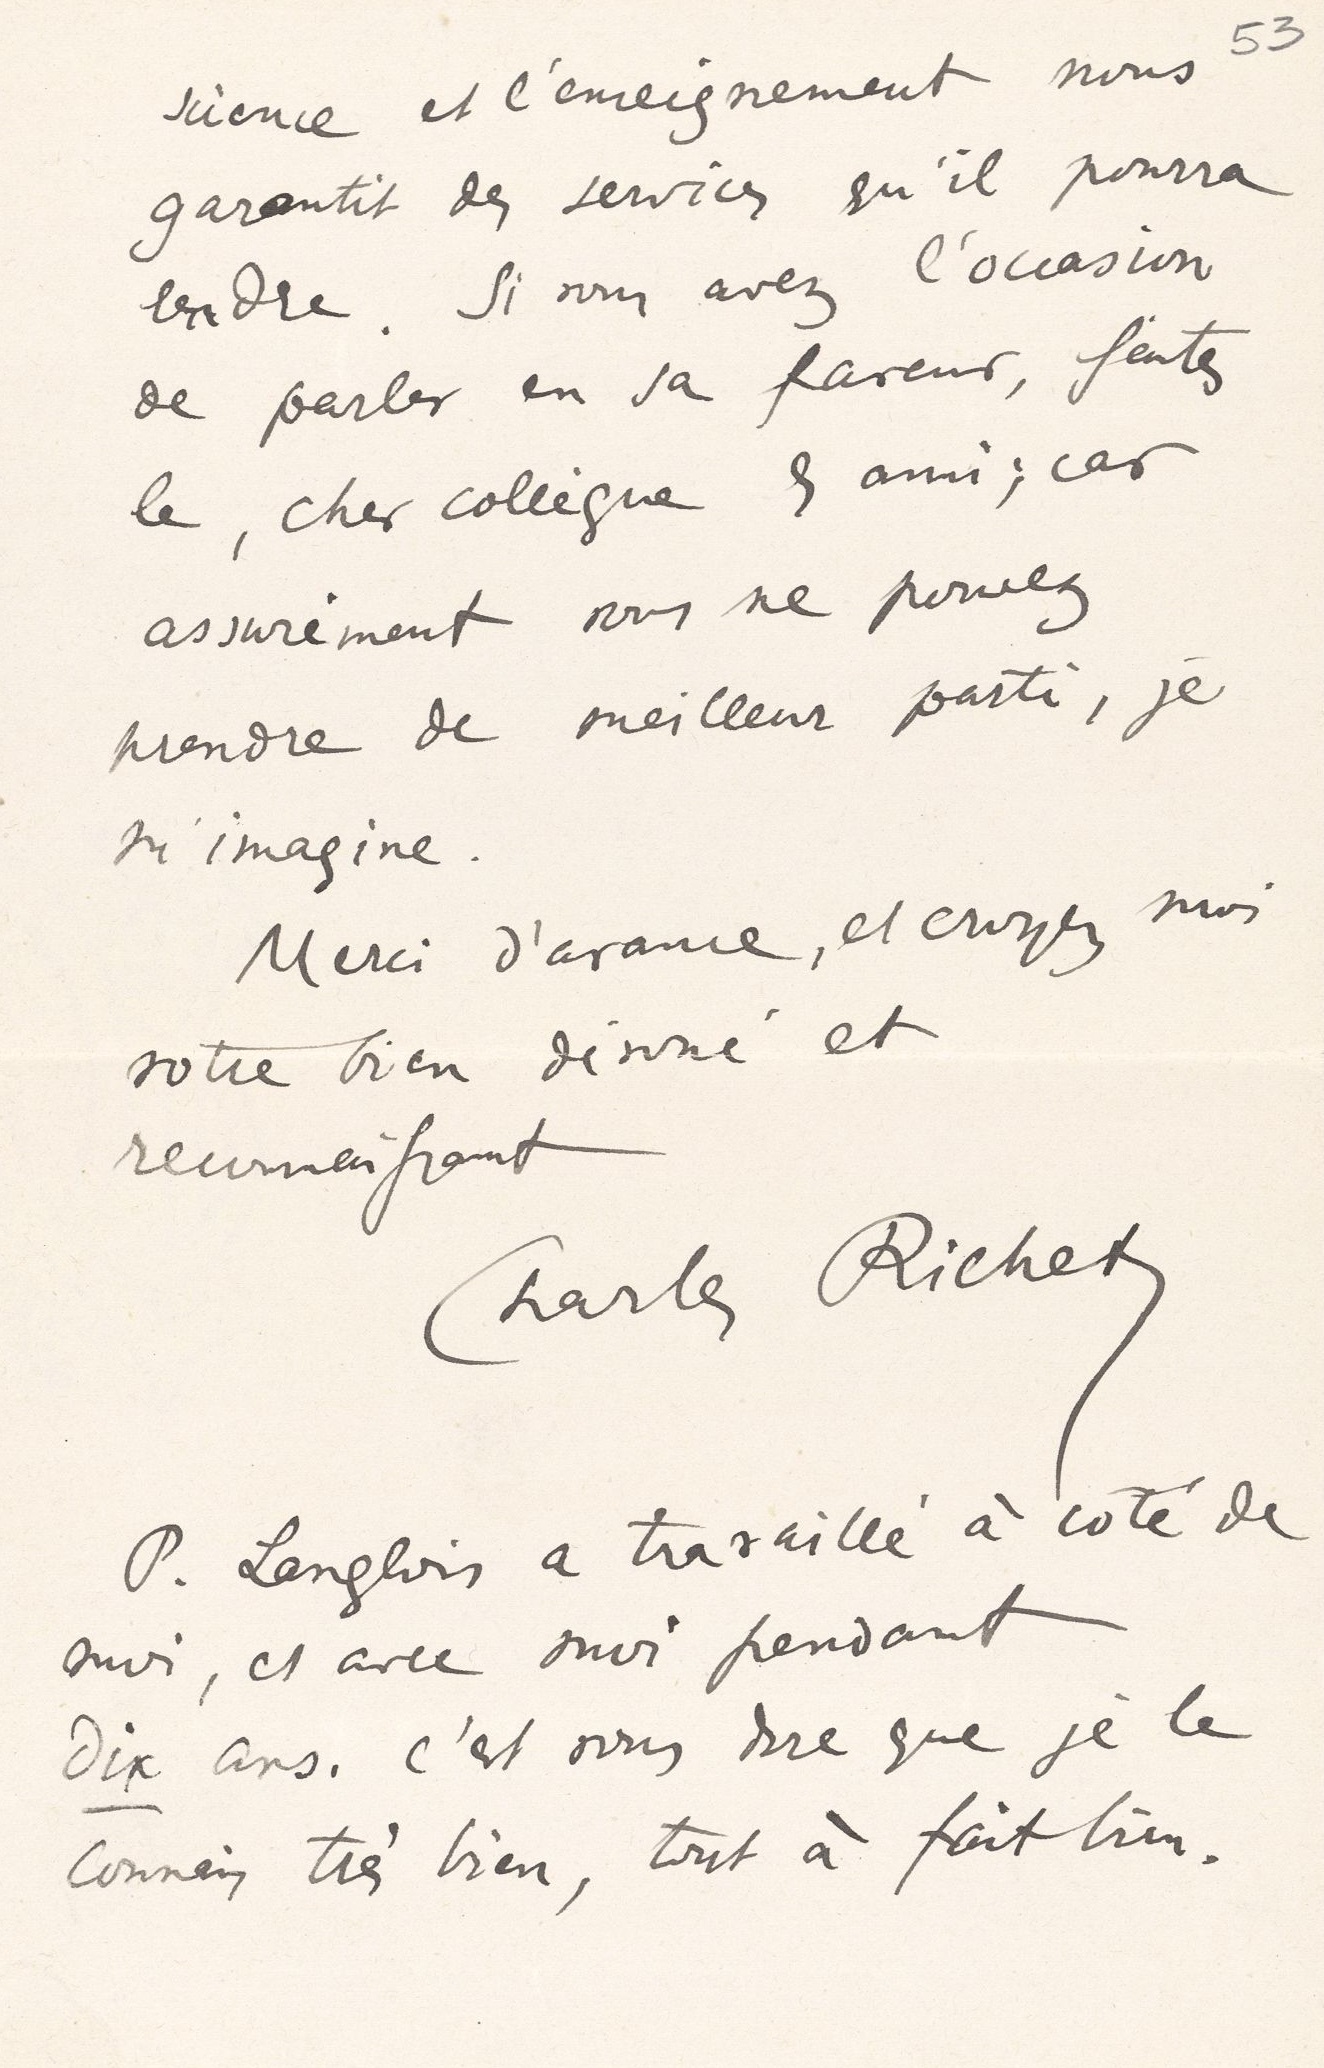 53
science et l'enseignement nous
garantit des services qu'il pourra
rendre. Si vous avez l'occasion
de parler en sa faveur, faites
le, cher collègue & ami ; car
assurément vous ne pouvez
prendre de meilleur parti, je
m'imagine.
Merci d'avance, et croyez moi
votre bien dévoué et
reconnaissant
Charles Richet
P. Langlois a travaillé à côté de
moi, et avec moi pendant
dix ans. C'est vous dire que je le
connais très bien, tout à fait bien.